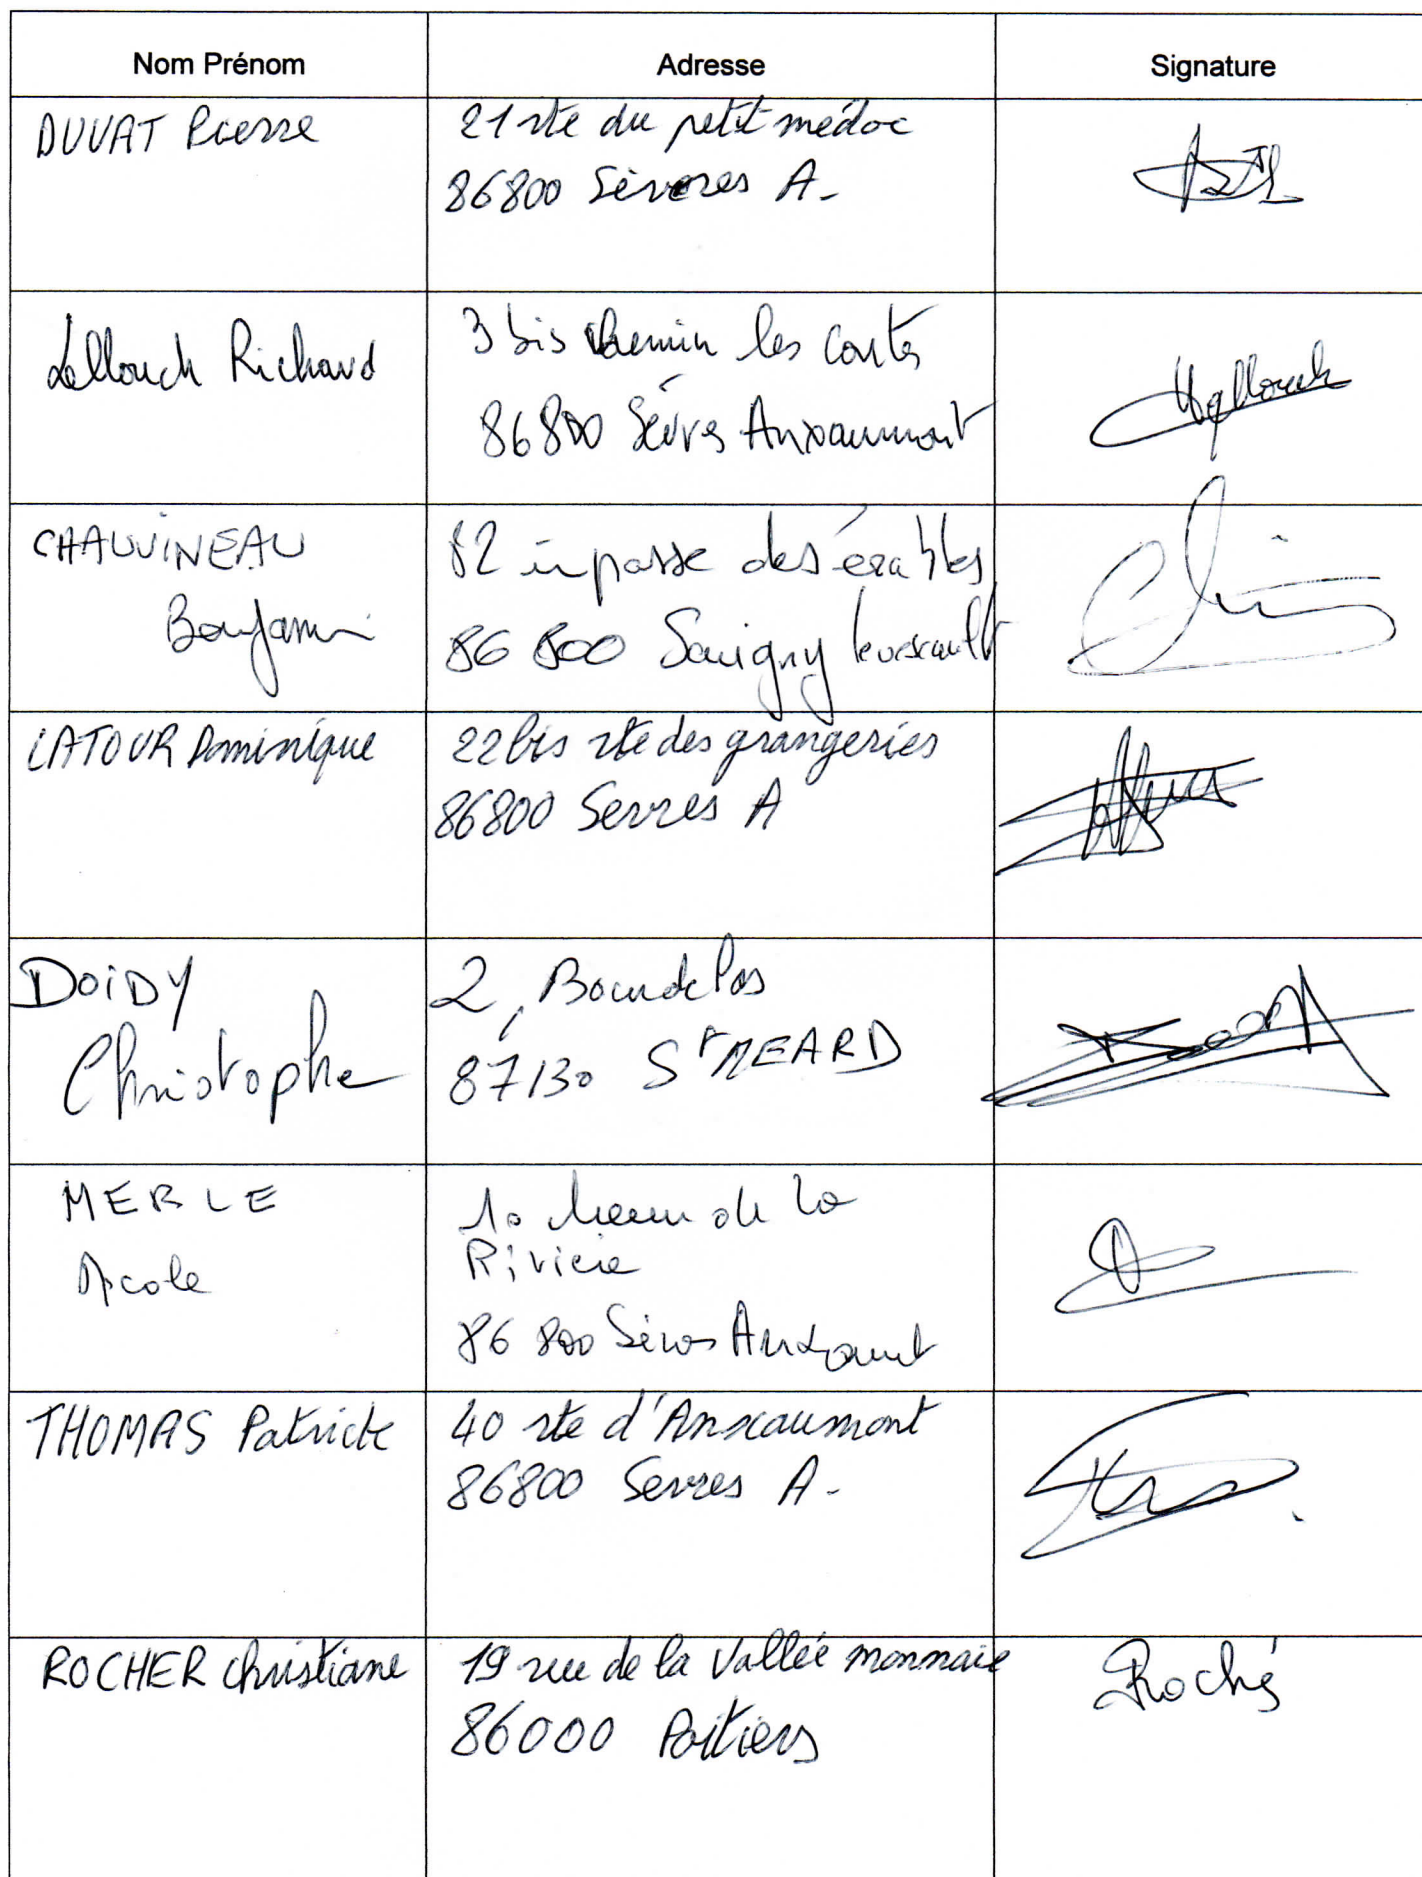 Nom Prénom
Adresse
Signature
DUVAT Pierre
21 rte du petit médoc
86800 Sèvres A.
Lellouch Richard
3 bis chemin les
86800 Sèvres Anxaumont
CHAUVINEAU
Benjamin
82 impasse des érables
86 800 Savigny levescault
LATOUR Dominique
22 bis rte des grangeries
86800 Sevres A
DOIDY
Christophe
2,
87130 St MEARD
MERLE
Nicole
10 de la
Rivière
86 800 Sèvres Anxaumont
THOMAS Patrick
40 rte d'Anxaumont
86800 Sevres A.
ROCHER Christiane
19 rue de la Vallée monnaie
86000 Poitiers
Roché